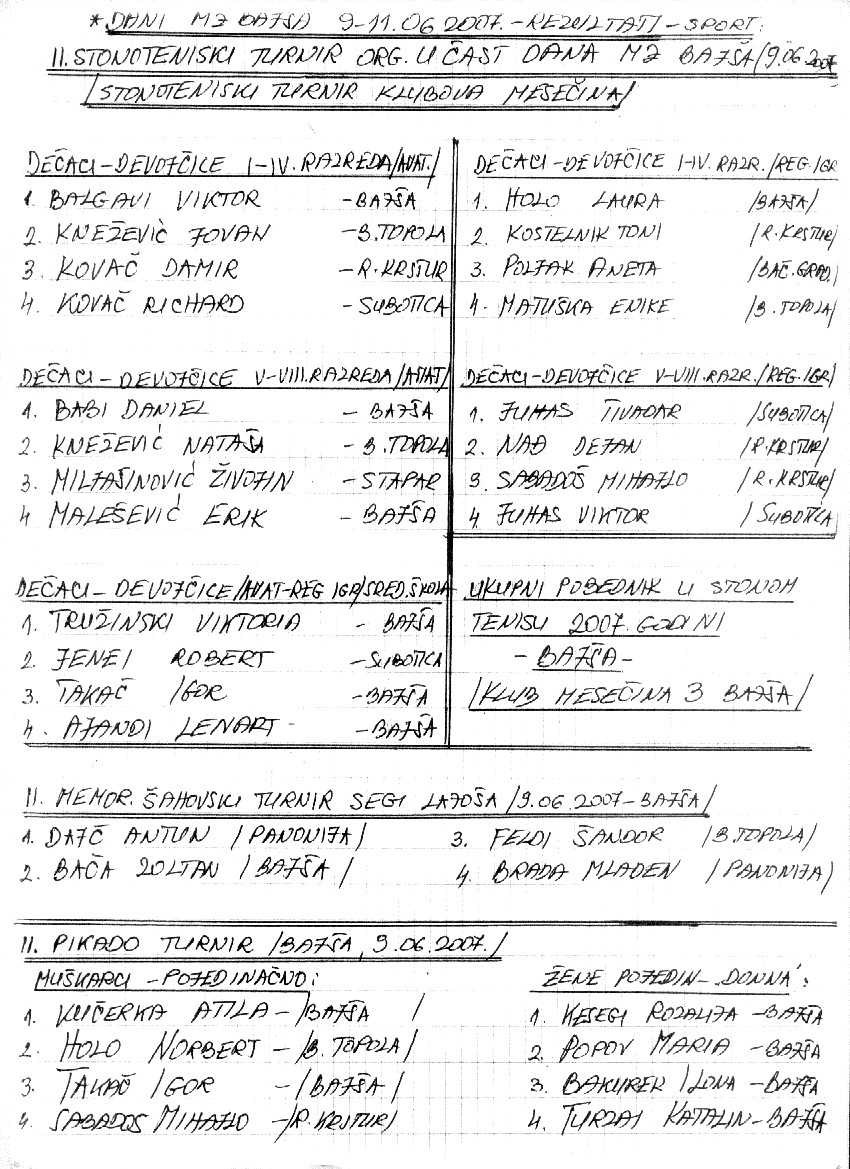 *DANI MZ BAJŠA 9-11.06.2007.-REZULTATI-SPORT:
II. STONOTENISKI TURNIR ORG. U ČAST DANA MZ BAJŠA/9.06.2007
/STONOTENISKI TURNIR KLUBOVA MESEČINA/
DEČACI-DEVOJČICE I-IV. RAZREDA/AMAT./
1. BALGAVI VIKTOR -BAJŠA
2. KNEŽEVIĆ JOVAN -B.TOPOLA
3. KOVAČ DAMIR -R.KRSTUR
4. KOVAČ RICHARD -SUBOTICA
DEČACI-DEVOJČICE I-IV. RAZR./REG.IGR
1. HOLO LAURA /BAJŠA/
2. KOSTELNIK TONI /R.KRSTUR/
3. POLJAK ANETA /BAČ.GRAD./
4. MATUŠKA ENIKE /B.TOPOLA/
DEČACI-DEVOJČICE V-VIII.RAZREDA/AMAT/
1. BABI DANIEL - BAJŠA
2. KNEŽEVIĆ NATAŠA - B.TOPOLA
3. MILJAŠINOVIĆ ŽIVOJIN - STAPAR
4 MALEŠEVIĆ ERIK - BAJŠA
DEČACI-DEVOJČICE V-VIII.RAZR./REG.IGR/
1. JUHAS TIVADAR /SUBOTICA/
2. NAĐ DEJAN /R.KRSTUR/
3. SABADOŠ MIHAJLO /R.KRSTUR/
4. JUHAS VIKTOR /SUBOTICA
DEČACI-DEVOJČICE/AMAT-REG IGR/SRED.ŠKOLA
1. TRUŽINSKI VIKTORIA - BAJŠA
2. JENEI ROBERT -SUBOTICA
3. TAKAČ IGOR -BAJŠA
4. AJANDI LENART - -BAJŠA
UKUPNI POBEDNIK U STONOM
TENISU 2007. GODINI
- BAJŠA -
/KLUB MESEČINA 3 BAJŠA/
II. MEMOR. ŠAHOVSKI TURNIR SEGI LAJOŠA /9.06.2007-BAJŠA/
1. DAJČ ANTUN /PANONIJA/
2. BAČA ZOLTAN /BAJŠA/
3. FELDI ŠANDOR /B.TOPOLA/
4. BRADA MLADEN /PANONIJA/
II. PIKADO TURNIR /BAJŠA, 9.06.2007./
MUŠKARCI -POJEDINAČNO:
1. KUČERKA ATILA-/BAJŠA /
2. HOLO NORBERT -/B.TOPOLA/
3. TAKAČ IGOR -/BAJŠA/
4. SABADOŠ MIHAJLO -/R.KRSTUR/
ŽENE POJEDIN-„DONNA":
1. KESEGI ROZALIJA -BAJŠA
2. POPOV MARIA -BAJŠA
3. BAKUREK ILONA -BAJŠA
4. TURZAI KATALIN-BAJŠA